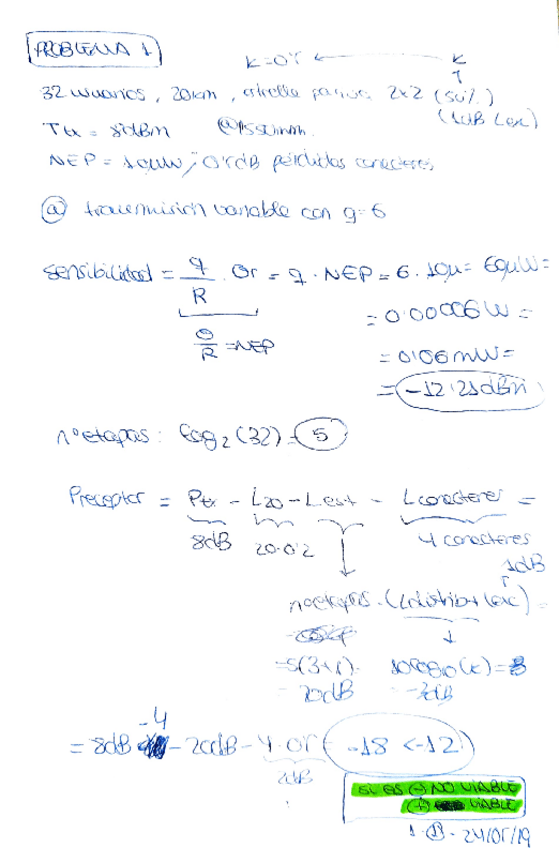 PROBLEMA 1
K=0'5 ← K
32 usuarios, 20km, estrella pasiva 2x2 (50%)
(1dB Lex)
Ptx = 8dBm @1550nm.
NEP = 10µW, 0'5dB pérdidas conectores
a) transmisión variable con q=6
sensibilidad = q/R · σr = q · NEP = 6 · 10µ = 60µW =
σ/R = NEP
= 0'00006W =
= 0'06mW =
= -12'21dBm
nº etapas: log2(32) = 5
Preceptor = Ptx - L20 - Lest - Lconectores =
8dB 20·0'2 4 conectores
1dB
nº etapas · (Ldistrib + Lex) =
= 5(3+1) 10log10(k) = 3
20dB -3dB
-4
= 8dB - 20dB - 4·0'5 = -18 < -12
2dB
SI ES (-) NO VIABLE
(+) VIABLE
24/05/19